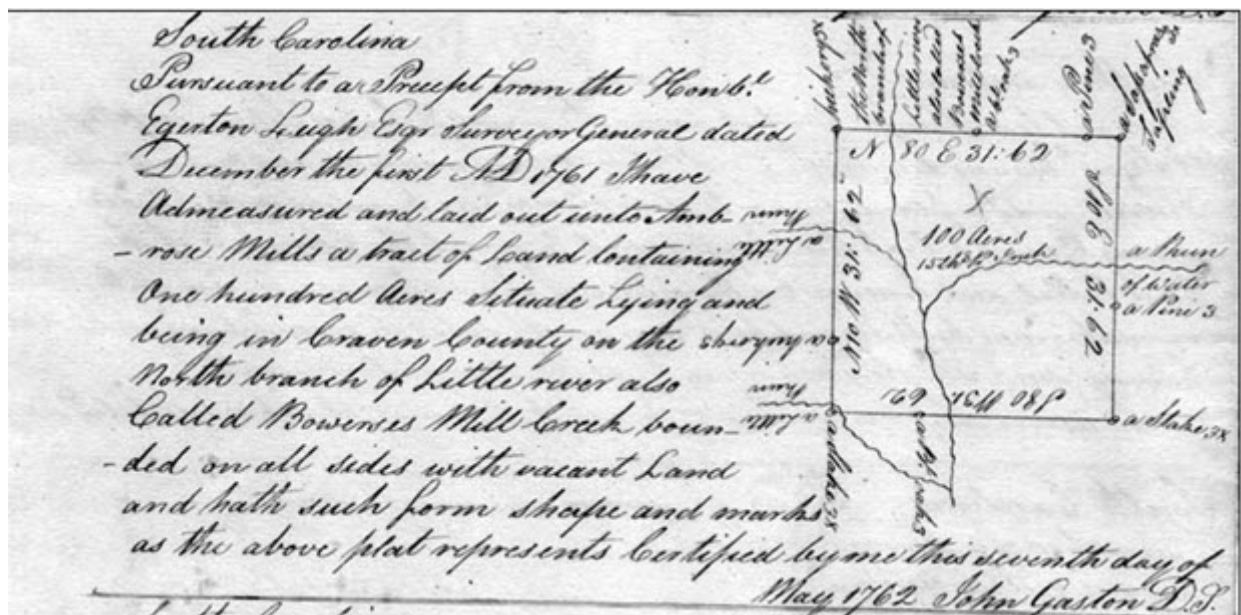 South Carolina
Pursuant to a Precept from the Honbl.
Egerton Leigh Esqr Surveyor General dated
December the first AD 1761 I have
Admeasured and laid out unto Amb-
-rose Mills a tract of Land Containing
One hundred Acres Situate Lying and
being in Craven County on the
North branch of Little river also
Called Bowerses Mill Creek boun-
-ded on all sides with vacant Land
and hath such form shape and marks
as the above plat represents Certified by me this seventh day of
May 1762 John Gaston D S
hickory 3x
the North
branch of
Little river
also called
Bowerses
Mill Creek
a Pine 3
a Sasafras
Sapling
N 80 E 31:62
X
N 10 W 31:62
S 10 E 31:62
100 Acres
a Little
Run
a Run
of Water
a Pine 3
S 80 W 31 62
a Little
Run
a Stake 3x